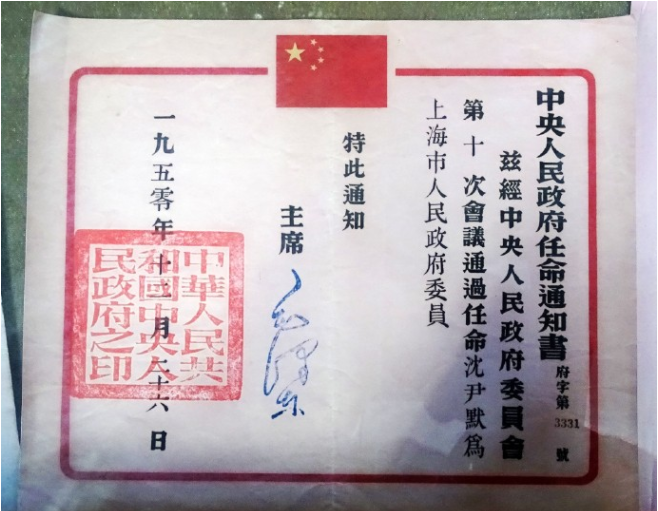 中央人民政府任命通知書
府字第3331號
茲經中央人民政府委員會
第十次會議通過任命沈尹默爲
上海市人民政府委員
特此通知
主席
毛澤東
一九五零年十二月二十六日
中華人民共
和國中央人
民政府之印